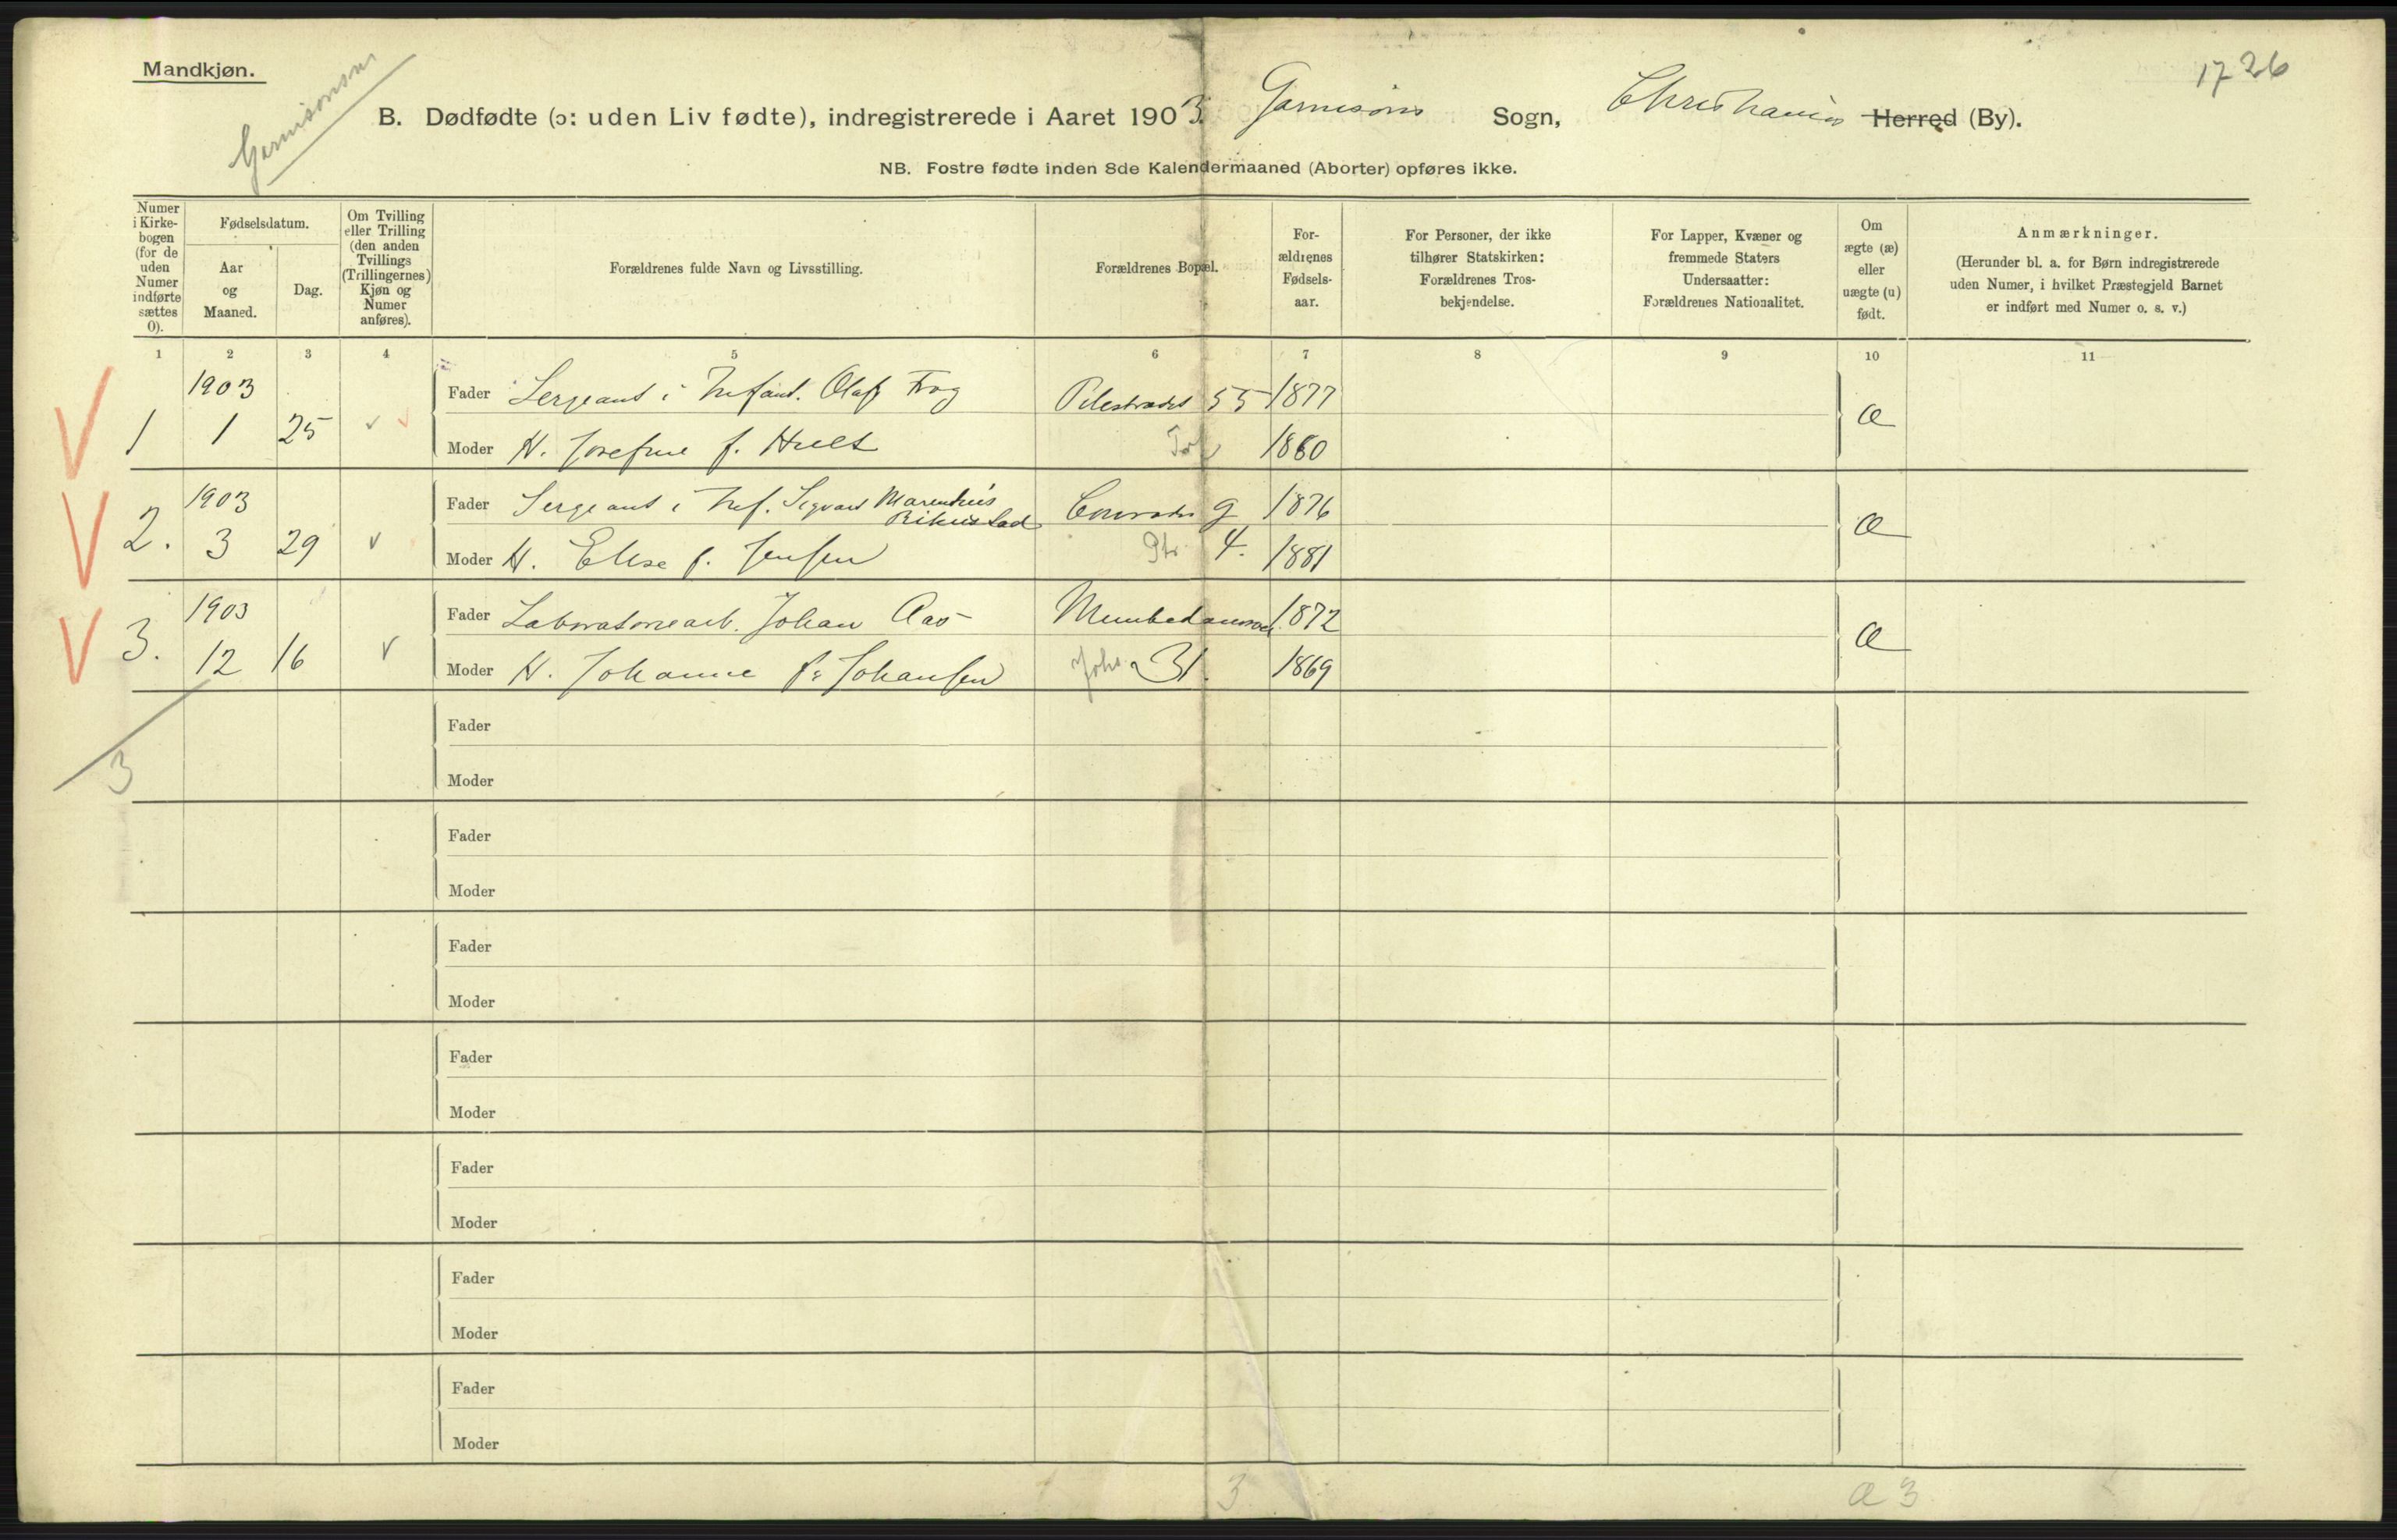 Mandkjøn.
Garnisons
1726
B. Dødfødte (ɔ: uden Liv fødte), indregistrerede i Aaret 1903. Garnisons Sogn, Christiania Herred (By).
NB. Fostre fødte inden 8de Kalendermaaned (Aborter) opføres ikke.
Numer
i Kirke-
bogen
(for de
uden
Numer
indførte
sættes
0).
Fødselsdatum.
Aar
og
Maaned.
Dag.
Om Tvilling
eller Trilling
(den anden
Tvillings
(Trillingernes)
Kjøn og
Numer
anføres).
Forældrenes fulde Navn og Livsstilling.
Forældrenes Bopæl.
For-
ældrenes
Fødsels-
aar.
For Personer, der ikke
tilhører Statskirken:
Forældrenes Tros-
bekjendelse.
For Lapper, Kvæner og
fremmede Staters
Undersaatter:
Forældrenes Nationalitet.
Om
ægte (æ)
eller
uægte (u)
født.
Anmærkninger.
(Herunder bl. a. for Børn indregistrerede
uden Numer, i hvilket Præstegjeld Barnet
er indført med Numer o. s. v.)
1 2 3 4 5 6 7 8 9 10 11
1903 Fader Sergeant i Infant. Olaf Frog Pilestrædet 55 1877
1 1 25 Moder H. Josefine f. Hult 1880 æ
1903 Fader Sergeant i Inf. Sigvart Marentius
Conrads g 1876
2. 3 29 Moder H. Elise f. Jensen 4. 1881 æ
1903 Fader Laboratoriearb. Johan Aas 1872
3. 12 16 Moder H. Johanne f. Johansen Johs 31. 1869 æ
3
Fader
Moder
Fader
Moder
Fader
Moder
Fader
Moder
Fader
Moder
Fader
Moder
Fader
Moder
3
æ 3